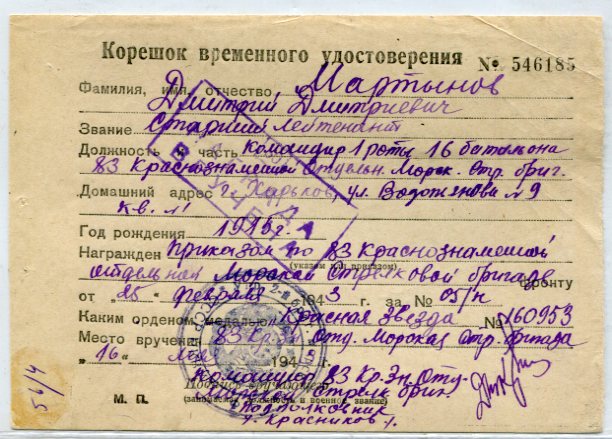 Корешок временного удостоверения № 546185
Фамилия, имя, отчество Мартынов
Дмитрий Дмитриевич
Звание Старший лейтенант
Должность и часть Командир 1 роты 16 батальона
83 Краснознаменной Отдельн. Морск. Стр. бриг.
Домашний адрес г. Харьков, ул. №9
кв. 11
Год рождения 1915 г.
Награжден приказом по 83 Краснознаменной
(указом или приказом)
отдельной Морской Стрелковой бригаде фронту
от "25" февраля 1943 г. за № 05/н
Каким орденом медалью Красная звезда № 160953
Место вручения 83 Кр. Зн. Отд. Морская Стр. бригада
"16" мая 194 г.
Командир 83 Кр. Зн. Отд.
Подпись вручившего
стрелк бриг.
(занимаемая должность и военное звание)
М. П. подполковник
Красников
54/4